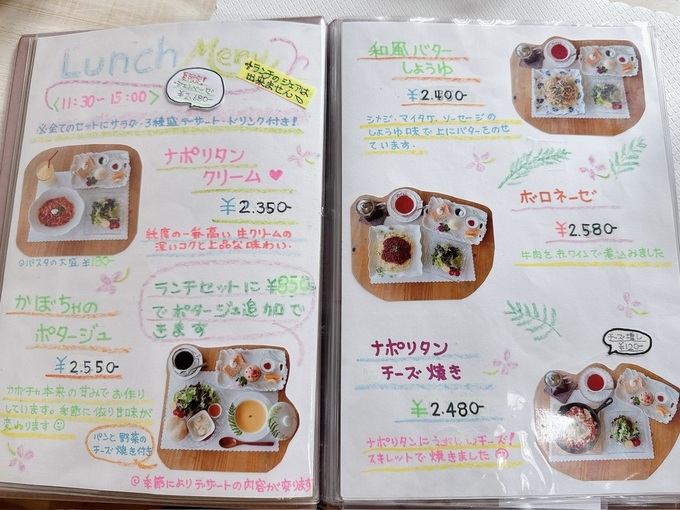 Lunch Menu
※ランチのシェアは
出来ません
〈11:30～15:00〉
¥2,680-
※全てのセットにサラダ・3種盛デザート・ドリンク付き!
ナポリタン
クリーム♥
¥2.350-
純度の一番高い生クリームの
深いコクと上品な味わい。
◎パスタの大盛 ¥180-
ランチセットに¥950
でポタージュ追加で
きます
かぼちゃの
ポタージュ
¥2.550-
カボチャ本来の甘みでお作り
しています。季節に依り甘味が
変わります☺
パンと野菜の
チーズ焼き付き
◎季節によりデザートの内容が変ります
和風バター
しょうゆ
¥2.490-
シメジ・マイタケ・ソーセージの
しょうゆ味で上にバターをのせ
ています。
ボロネーゼ
¥2.580-
牛肉を赤ワインで煮込みました
チーズ増し
¥120-
ナポリタン
チーズ焼き
¥2.480-
ナポリタンにうれしいチーズ!
スキレットで焼きました☺